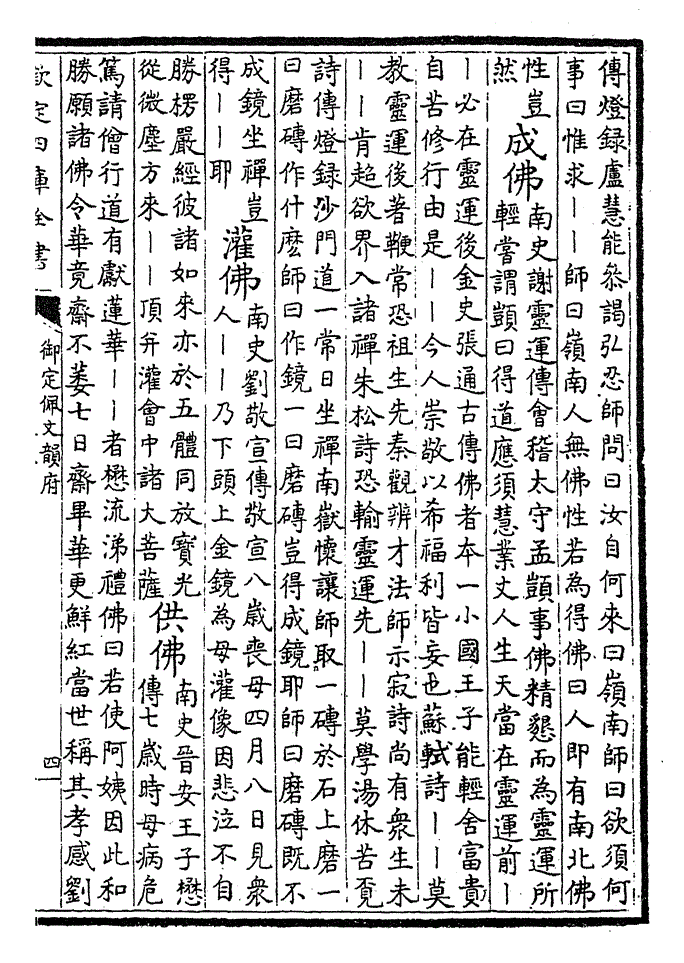 傳燈録盧慧能叅謁弘忍師問曰汝自何來曰嶺南師曰欲須何
事曰惟求——師曰嶺南人無佛性若為得佛曰人即有南北佛
性豈
然
成佛
南史謝靈運傳會稽太守孟顗事佛精懇而為靈運所
輕嘗謂顗曰得道應須慧業丈人生天當在靈運前—
—必在靈運後金史張通古傳佛者本一小國王子能輕舍富貴
自苦修行由是——今人崇敬以希福利皆妄也蘇軾詩——莫
教靈運後著鞭常恐祖生先秦觀辨才法師示寂詩尚有衆生未
——肯超欲界入諸禪朱松詩恐輸靈運先——莫學湯休苦覔
詩傳燈録沙門道一常日坐禪南嶽懷讓師取一磚於石上磨一
曰磨磚作什麽師曰作鏡一曰磨磚豈得成鏡耶師曰磨磚既不
成鏡坐禪豈
得——耶
灌佛
南史劉敬宣傳敬宣八歳喪母四月八日見衆
人——乃下頭上金鏡為母灌像因悲泣不自
勝楞嚴經彼諸如來亦於五體同放寳光
從微塵方來——頂并灌會中諸大菩薩
供佛
南史晉安王子懋
傳七歳時母病危
篤請僧行道有獻蓮華——者懋流涕禮佛曰若使阿姨因此和
勝願諸佛令華竟齋不萎七日齋畢華更鮮紅當世稱其孝感劉
欽定四庫全書
御定佩文韻府
四